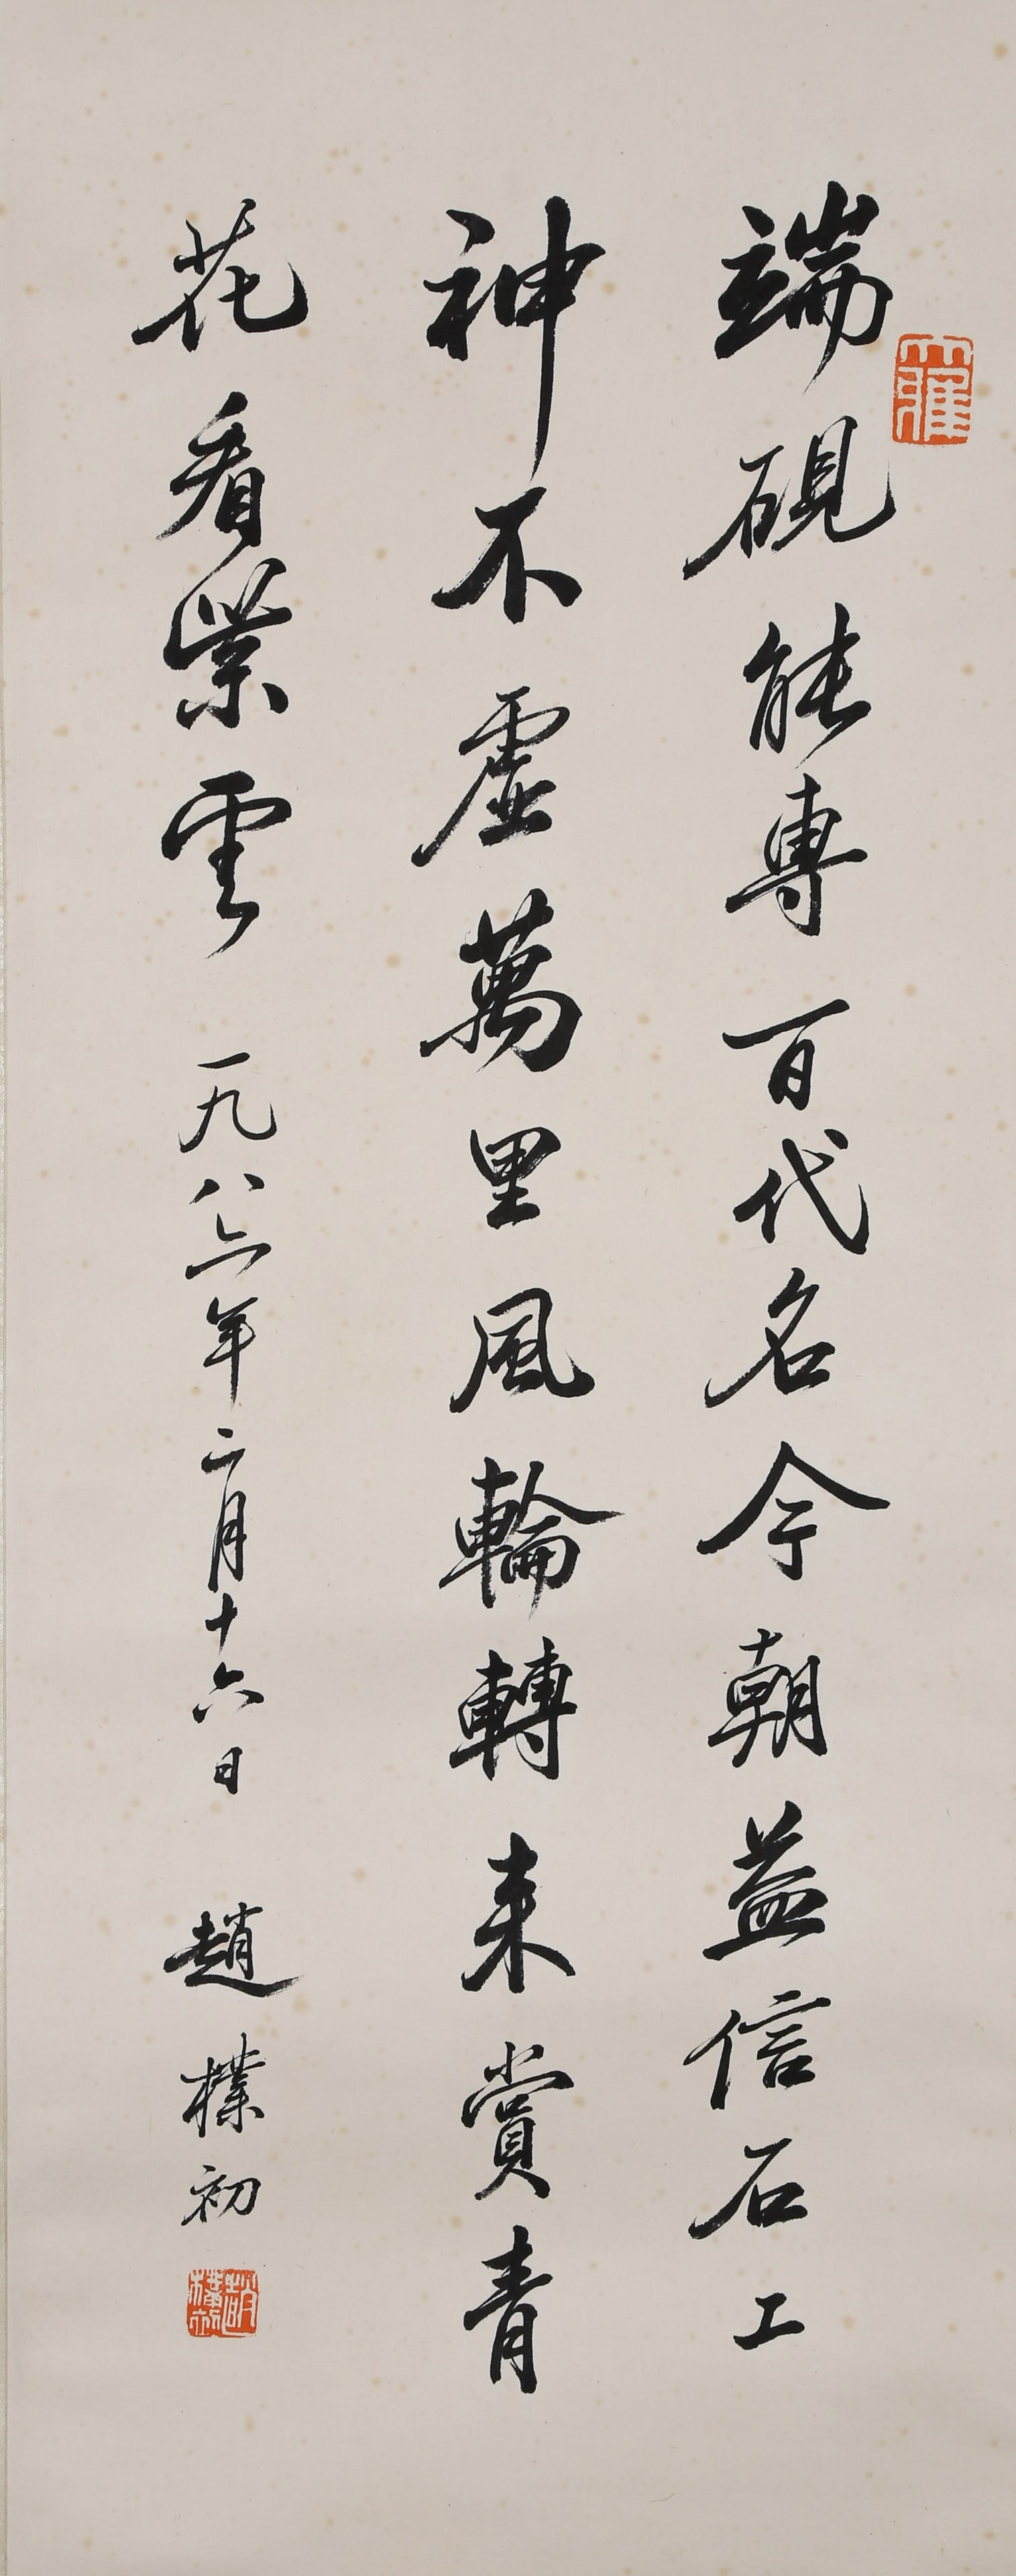 端硯能專百代名今朝益信石工
神不虛萬里風輪轉來賞青
花看紫雲 一九八年二月十六日 趙樸初
趙樸初